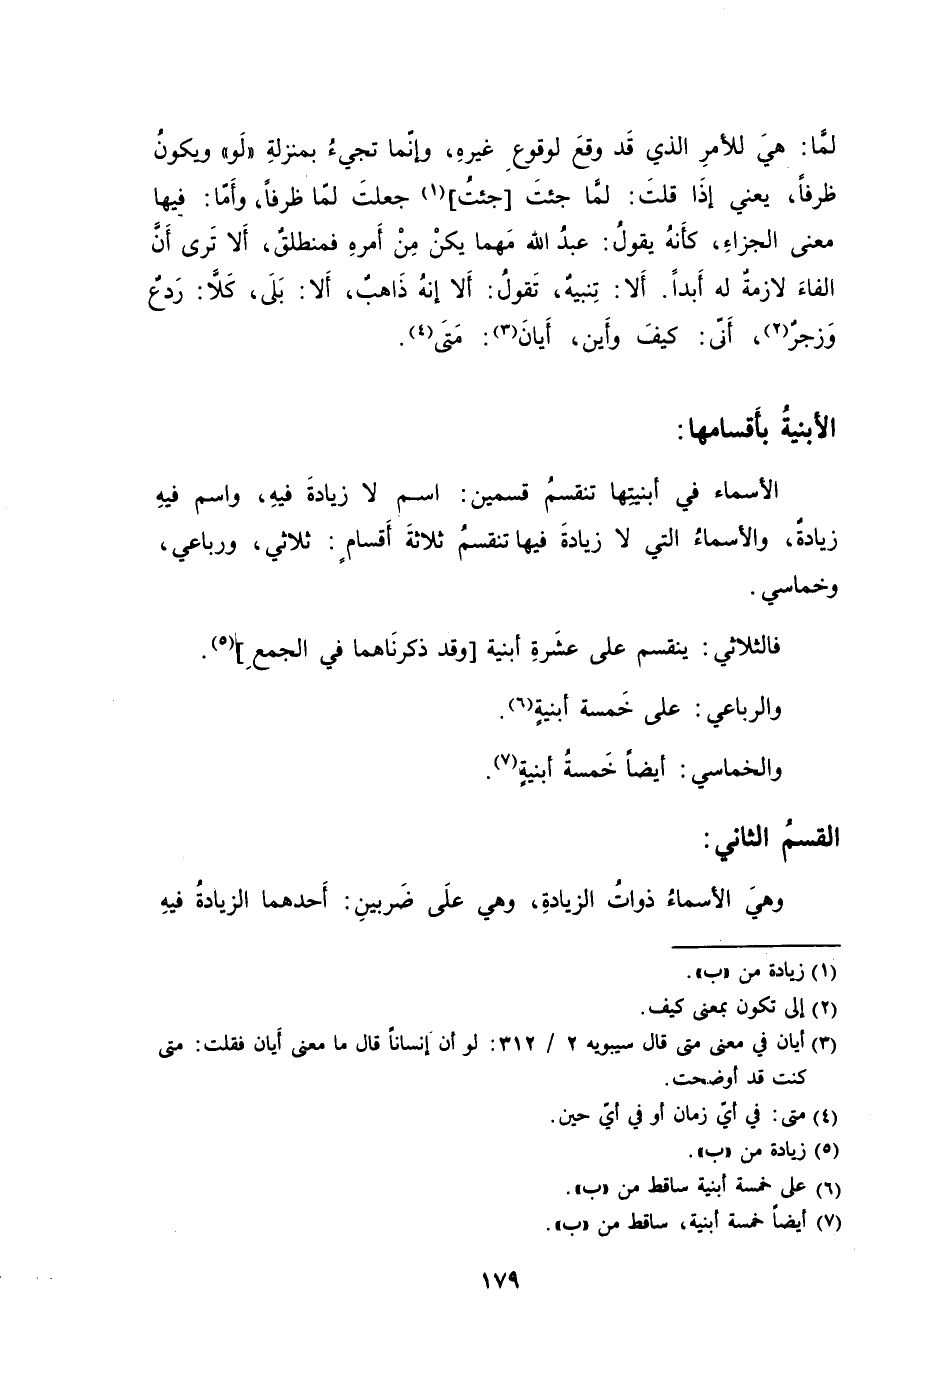 لمَّا: هيَ للأمرِ الذي قَد وقعَ لوقوعِ غيرهِ، وإنّما تجيءُ بمنزلةِ «لَو» ويكونُ
ظرفاً، يعني إذَا قلتَ: لمَّا جئتَ [جئتُ](١) جعلتَ لمّا ظرفاً، وأَمّا: فيها
معنى الجزاءِ، كأَنهُ يقولُ: عبدُ الله مَهما يكنْ مِنْ أَمرهِ فمنطلقٌ، أَلا تَرى أَنَّ
الفاءَ لازمةٌ له أَبداً. أَلا: تِنبيهٌ، تَقولُ: أَلا إنهُ ذَاهبٌ، أَلا: بَلَى، كَلَّا: رَدعٌ
وَزجرٌ(٢)، أَنّى: كيفَ وأَين، أَيانَ(٣): مَتَى(٤).
الأبنيةُ بأَقسامها:
الأسماء في أبنيتِها تنقسمُ قسمين: اسم لا زيادةَ فيهِ، واسم فيهِ
زيادةٌ، والأسماءُ التي لا زيادةَ فيها تنقسمُ ثلاثةَ أَقسامٍ: ثلاثي، ورباعي،
وخماسي.
فالثلاثي: ينقسم على عشَرةِ أبنية [وقد ذكرنَاهما في الجمعِ](٥).
والرباعي: على خَمسة أبنيةٍ(٦).
والخماسي: أيضاً خَمسةُ أبنيةٍ(٧).
القسمُ الثاني:
وهيَ الأسماءُ ذواتُ الزيادةِ، وهي علَى ضَربينِ: أَحدهما الزيادةُ فيهِ
(١) زيادة من «ب».
(٢) إلى تكون بمعنى كيف.
(٣) أيان في معنى متى قال سيبويه ٢ / ٣١٢: لو أن إنساناً قال ما معنى أَيان فقلت: متى
كنت قد أوضحت.
(٤) متى: في أيّ زمان أو في أيّ حين.
(٥) زيادة من «ب».
(٦) على خمسة أبنية ساقط من «ب».
(٧) أيضاً خمسة أبنية، ساقط من «ب».
١٧٩